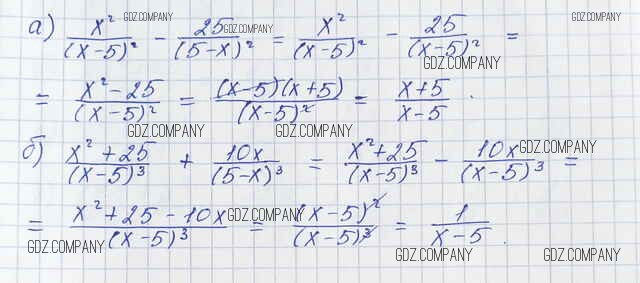 а) x²/(x-5)² - 25/(5-x)² = x²/(x-5)² - 25/(x-5)² =
= x²-25/(x-5)² = (x-5)(x+5)/(x-5)² = x+5/x-5.
б) x²+25/(x-5)³ + 10x/(5-x)³ = x²+25/(x-5)³ - 10x/(x-5)³ =
= x²+25-10x/(x-5)³ = (x-5)²/(x-5)³ = 1/x-5.
GDZ.COMPANY
GDZ.COMPANY
GDZ.COMPANY
GDZ.COMPANY
GDZ.COMPANY
GDZ.COMPANY
GDZ.COMPANY
GDZ.COMPANY
GDZ.COMPANY
GDZ.COMPANY
GDZ.COMPANY